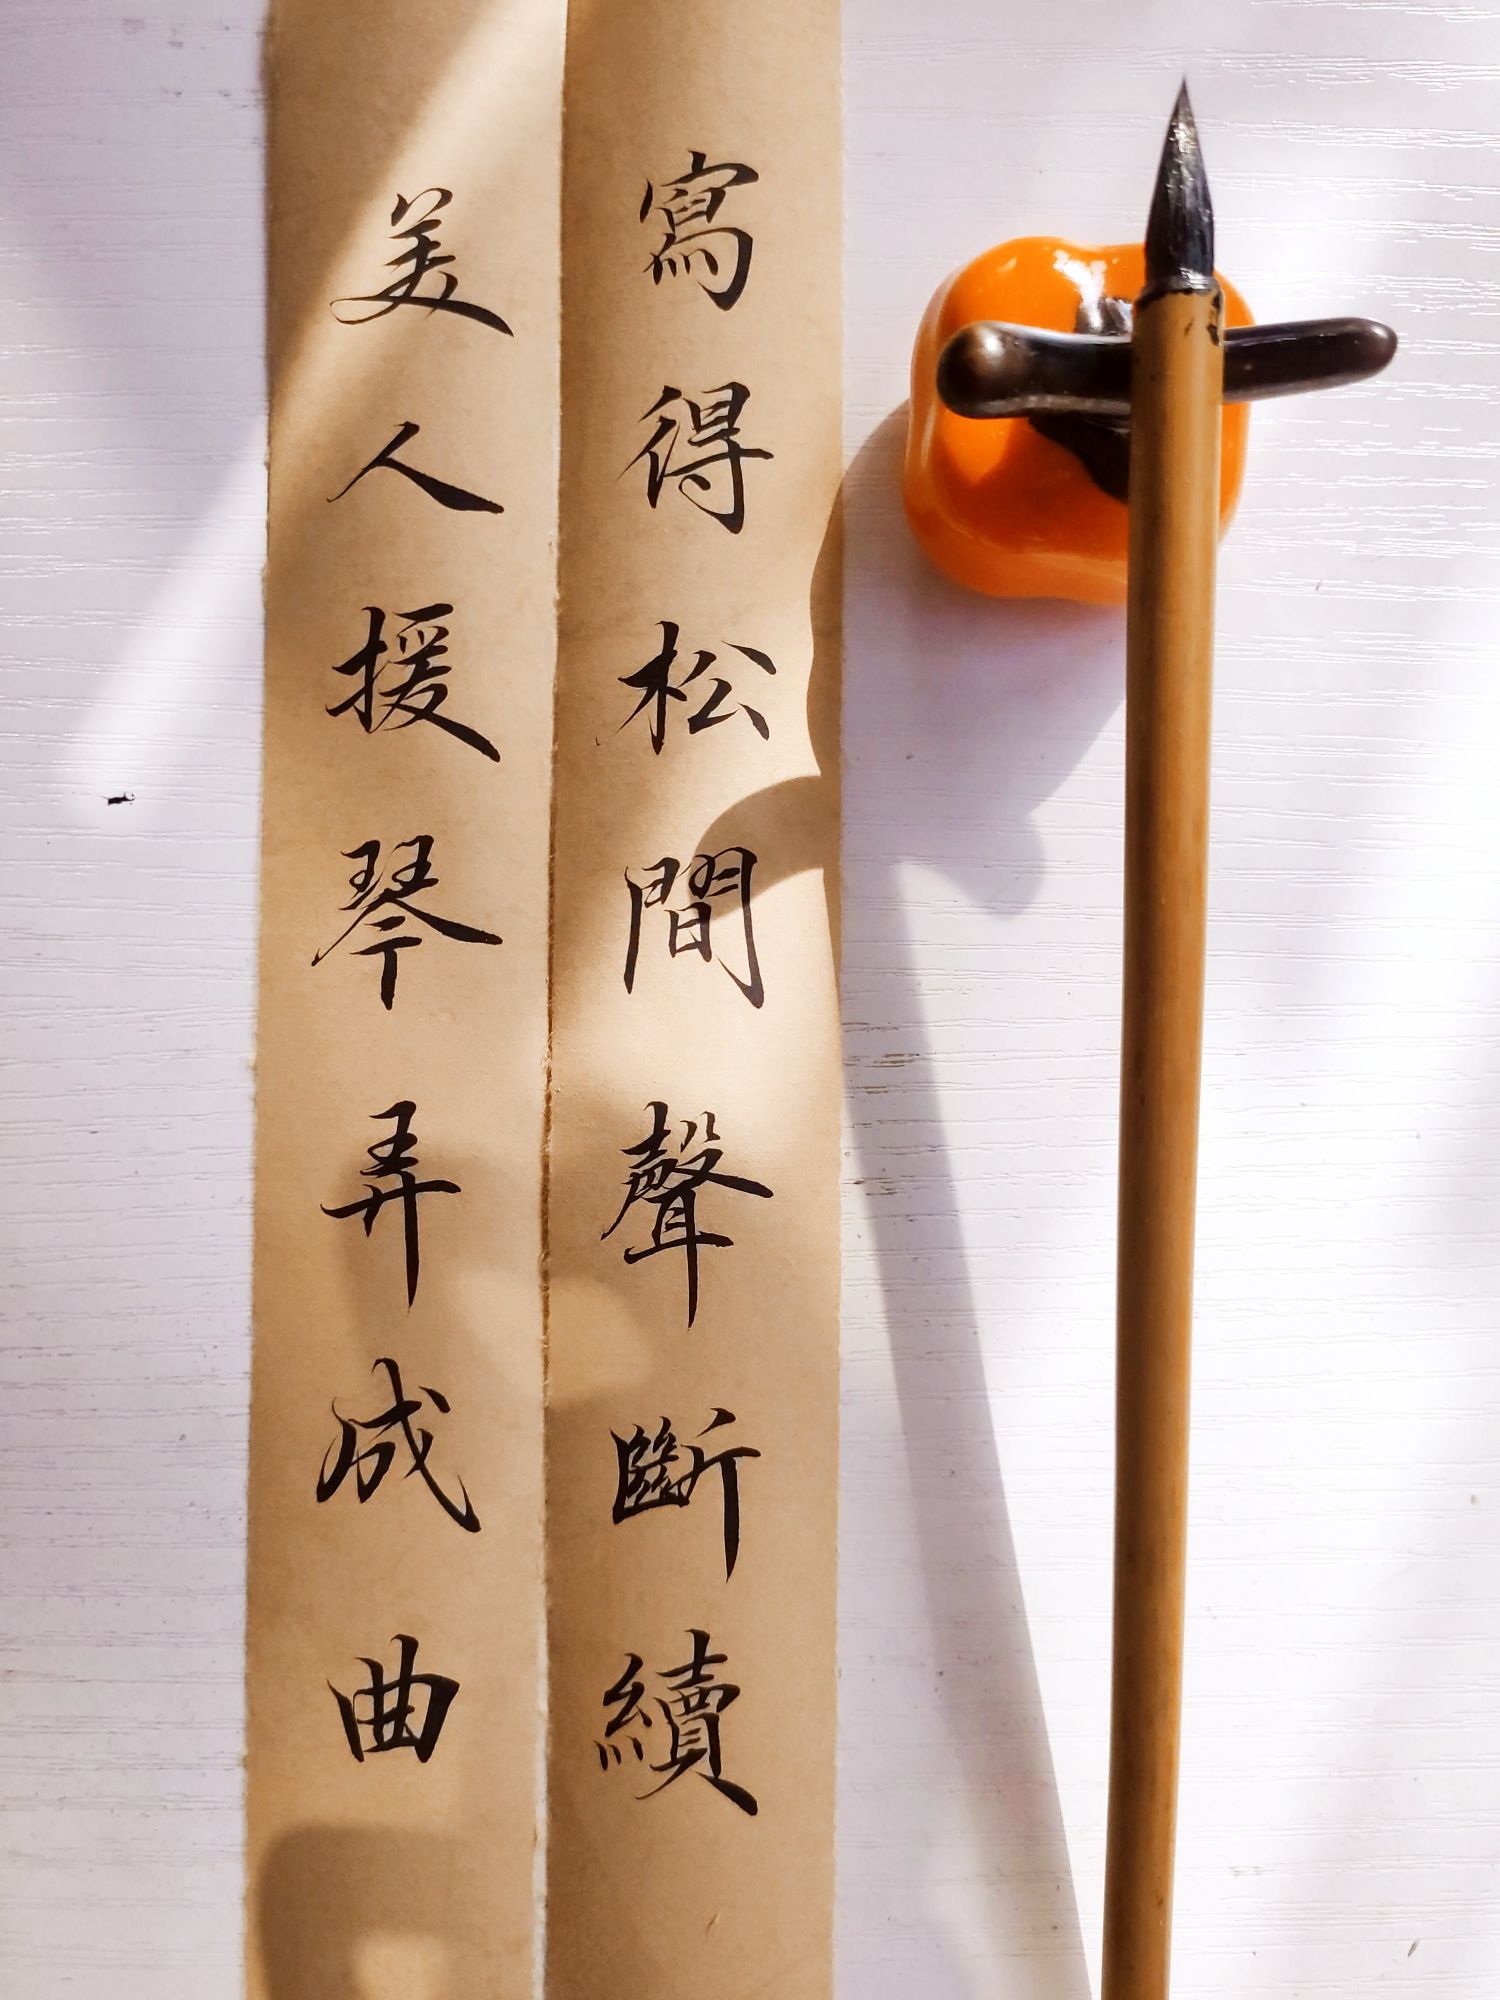 寫得松間聲斷續
美人援琴弄成曲